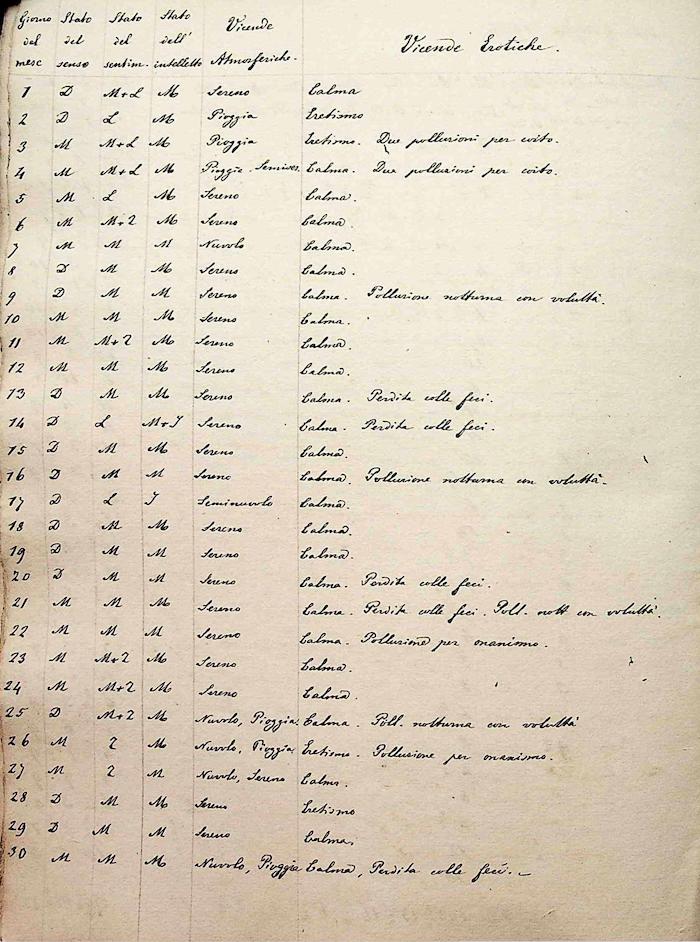 Giorno Stato Stato Stato Vicende
del del del dell' Vicende Erotiche.
mese senso sentim. intelletto Atmosferiche.
1 D M+L M Sereno Calma
2 D L M Pioggia Eretismo
3 M M+L M Pioggia Eretismo. Due polluzioni per coito.
4 M M+L M Pioggia. Calma. Due polluzioni per coito.
5 M L M Sereno Calma.
6 M M+2 M Sereno Calma.
7 M M M Nuvolo Calma.
8 D M M Sereno Calma.
9 D M M Sereno Calma. Polluzione notturna con voluttà.
10 M M M Sereno Calma.
11 M M+2 M Sereno Calma.
12 M M M Sereno Calma.
13 D M M Sereno Calma. Perdita colle feci.
14 D L M+I Sereno Calma. Perdita colle feci.
15 D M M Sereno Calma.
16 D M M Sereno Calma. Polluzione notturna con voluttà.
17 D L I Seminuvolo Calma.
18 D M M Sereno Calma.
19 D M M Sereno Calma.
20 D M M Sereno Calma. Perdita colle feci.
21 M M M Sereno Calma. Perdita colle feci. Poll. nott con voluttà.
22 M M M Sereno Calma. Polluzione per onanismo.
23 M M+2 M Sereno Calma.
24 M M+2 M Sereno Calma.
25 D M+2 M Nuvolo, Pioggia. Calma. Poll. notturna con voluttà
26 M 2 M Nuvolo, Pioggia. Eretismo. Polluzione per onanismo.
27 M 2 M Nuvolo, Sereno Calma.
28 D M M Sereno Eretismo
29 D M M Sereno Calma.
30 M M M Nuvolo, Pioggia Calma, Perdita colle feci.